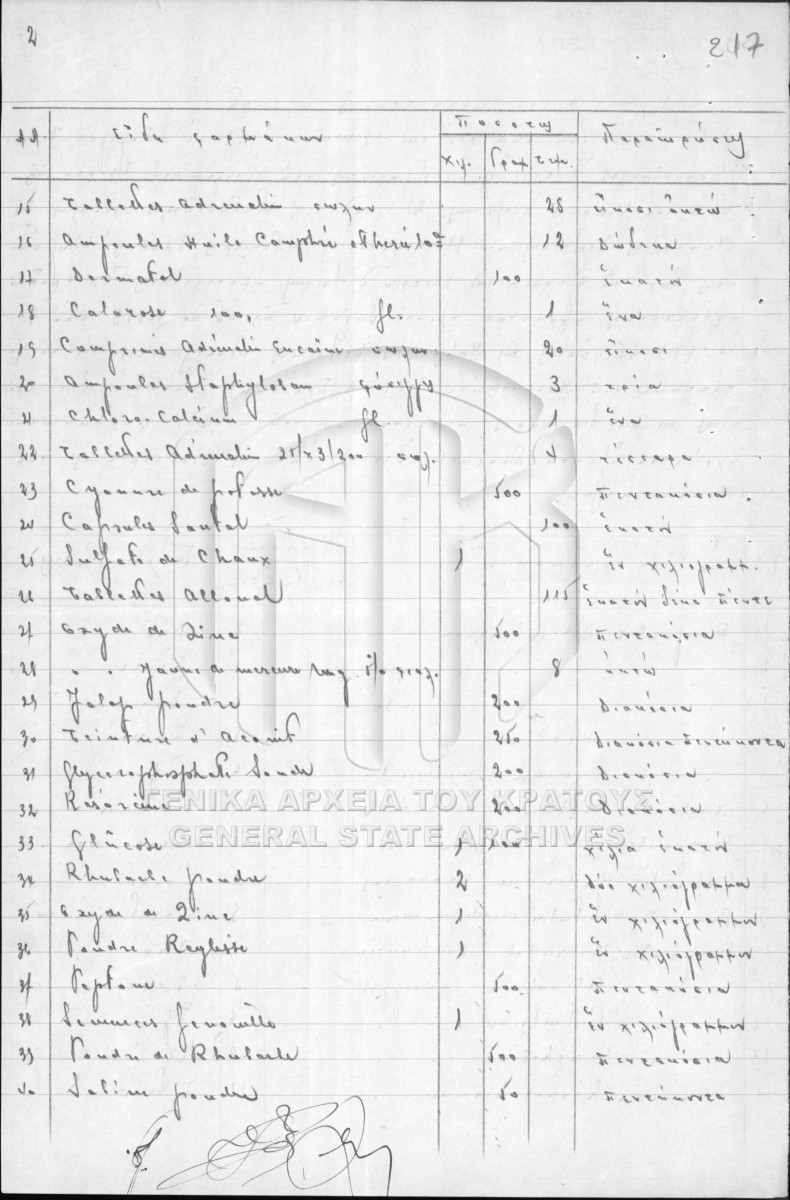 2
217
ΑΑ. Είδη φαρμάκων Ποσότης Παρατηρήσεις
χιλ. Γραμ τεμ.
15 Tablettes Adrenalin σωλην 28 εἴκοσι ὀκτώ
16 Ampoules Huile Camphré etheré 10% 12 δώδεκα
17 Dermatol 100 ἑκατόν
18 Calorose 100, fl. 1 ἕνα
19 Comprimés Adrénalin σωλην 20 εἴκοσι
20 Ampoules Staphylosan φύσιγγες 3 τρία
21 Chloro-Calcium fl. 1 ἕνα
22 Tablettes Adrénalin σωλ. 4 τέσσαρα
23 Cyanure de potasse 500 πεντακόσια
24 Capsules Santal 100 ἑκατόν
25 Sulfate de Chaux 1 ἕν χιλιόγραμμ.
26 Tablettes Allonal 115 ἑκατόν δέκα πέντε
27 Oxyde de Zinc 500 πεντακόσια
28 " " Jaune de mercure 8 ὀκτώ
29 Jalap poudre 200 διακόσια
30 Teinture d'Aconit 250 διακόσια πεντήκοντα
31 Glycerophosphate Soude 200 διακόσια
32 Résorcine 200 διακόσια
33 Glücose 1 100 χίλια ἑκατόν
34 Rhubarbe poudre 2 δύο χιλιόγραμμα
35 Oxyde de Zinc 1 ἕν χιλιόγραμμον
36 Poudre Reglisse 1 ἕν χιλιόγραμμον
37 Peptone 500 πεντακόσια
38 Semences 1 ἕν χιλιόγραμμον
39 Poudre de Rhubarbe 500 πεντακόσια
40 Sabine poudre 50 πεντήκοντα
ΓΕΝΙΚΑ ΑΡΧΕΙΑ ΤΟΥ ΚΡΑΤΟΥΣ
GENERAL STATE ARCHIVES